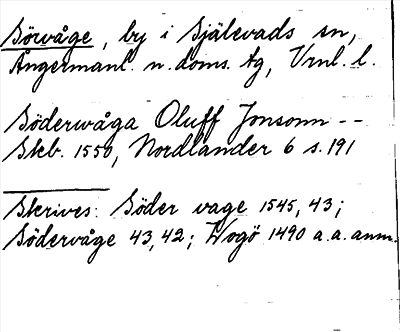 Sörvåge, by i Själevads sn,
Ångermanl. n. doms. tg, Vrnl. l.
Söderwåga Oluff Jonsonn --
Skb. 1550, Nordlander 6 s. 191
Skrives: Söder vage 1545, 43;
Södervåge 43, 42; Wogö 1490 a. a. anm.